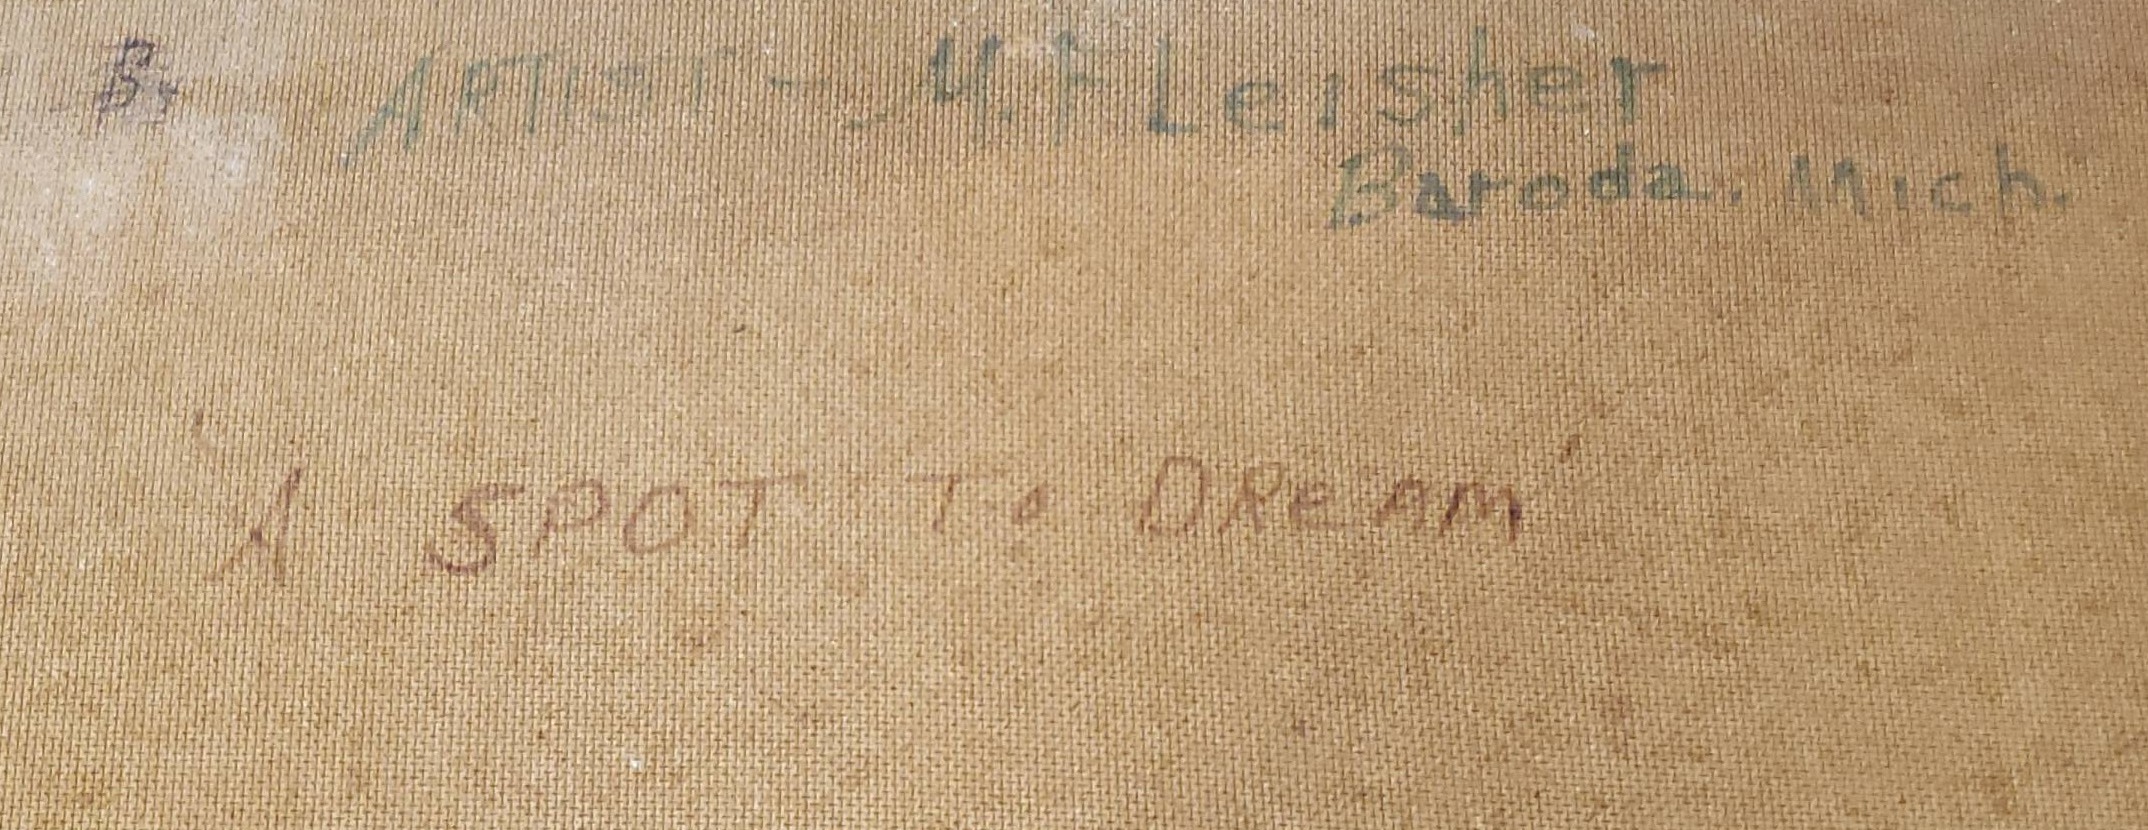 B. ARTIST - M. FLeisher
Baroda. Mich.
"A SPOT To DReAM"